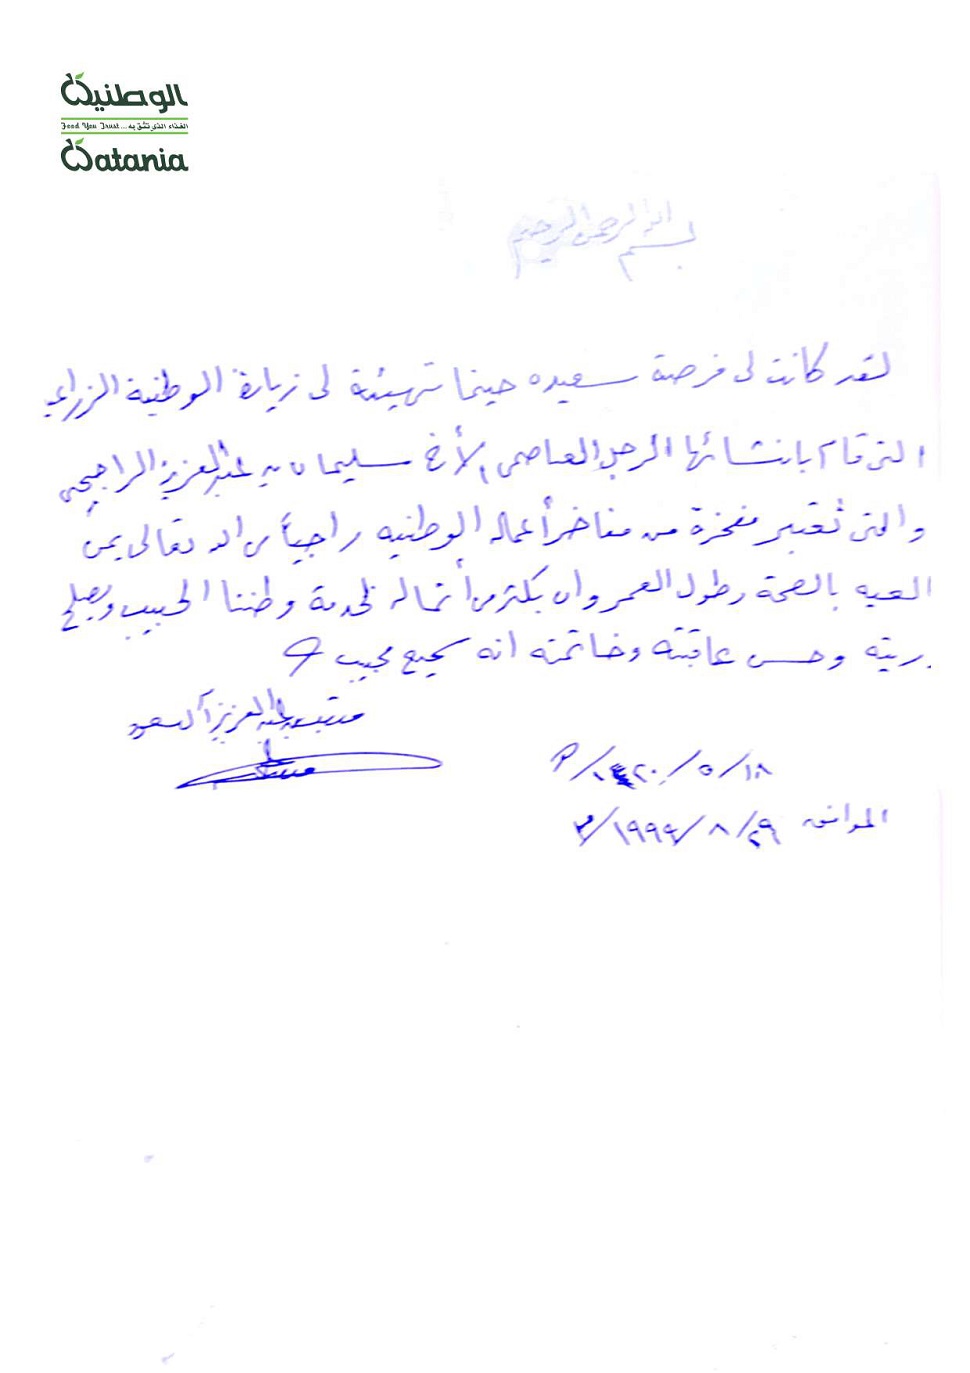 الوطنية
Food You Trust... الغذاء الذي تثق به
Watania
بسم الله الرحمن الرحيم
لقد كانت لى فرصة سعيده حينما تهيئة لى زيارة الوطنية الزراعيه
التى قام بانشائها الرجل العصامى الأخ سليمان بن عبدالعزيز الراجحي
والتى تعتبر مفخرة من مفاخر أعماله الوطنيه راجياً من الله تعالى يمن
اليه بالصحة وطول العمر وان يكثر من أمثاله لخدمة وطننا الحبيب ويصلح
ذريته وحسن عاقبته وخاتمته انه سميع مجيب
متعب بن عبدالعزيز آل سعود
١٨/٥/١٤٢٠/هـ
الموافق ٢٩/٨/١٩٩٩/م